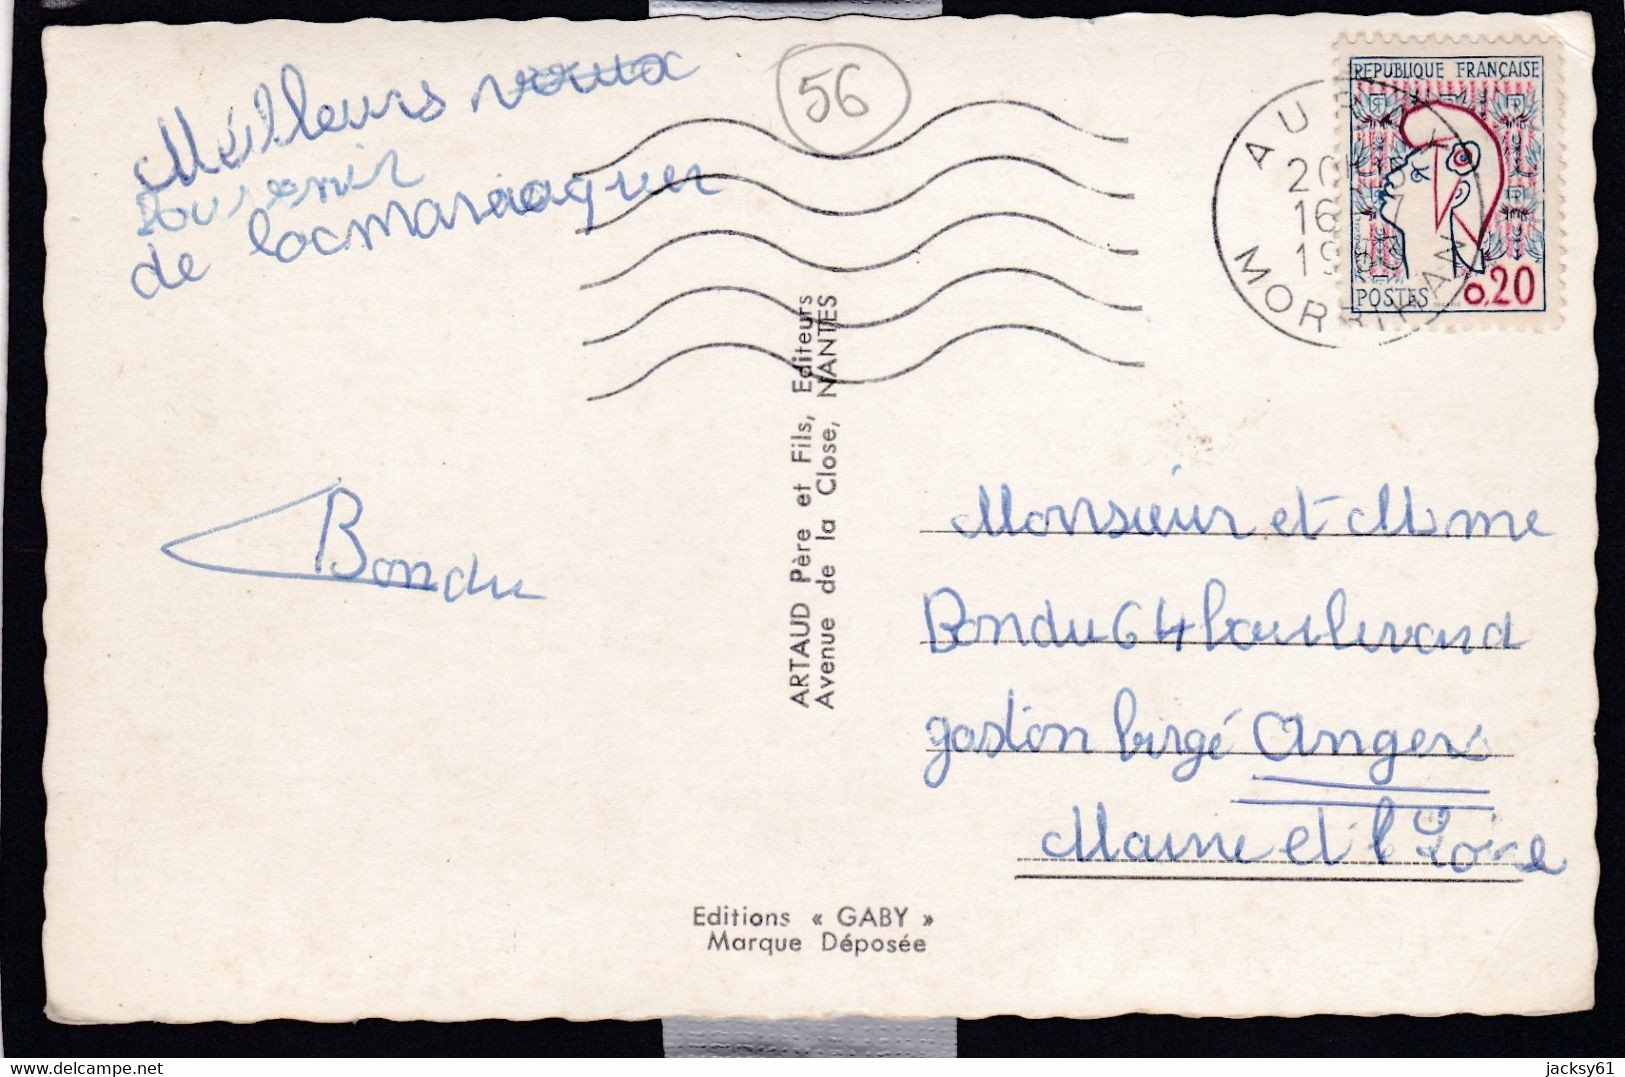 Meilleurs voeux
souvenir
de locmariaaquer
Bondu
56
ARTAUD Père et Fils, Editeurs
Avenue de la Close, NANTES
Editions « GABY »
Marque Déposée
REPUBLIQUE FRANÇAISE
POSTES 0,20
AURAY
20
16
19
MORBIHAN
Monsieur et Mme
Bondu 64 boulevard
gaston birgé Angers
Maine et l Loire
jacksy61
delcampe.net